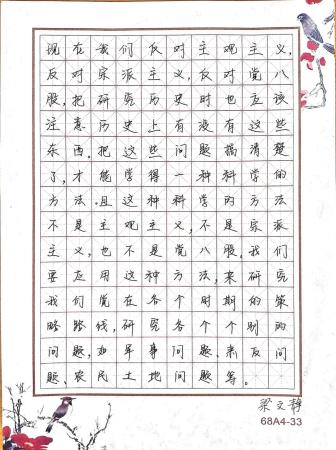 现在我们反对主观主义,
反对宗派主义,反对党八
股,把研究历史时也应该
注意历史上有没有这些
东西,把这些问题搞清楚
了,才能学得一种科学的
方法.且这种科学的方法
不是主观主义,不是宗派
主义,也不是党八股.我们
要应用这种方法,来研究
我们党在各个时期的策
略路线,研究各个个别的
问题,如军事问题、肃反问
题、农民土地问题等。
梁文静
68A4-33